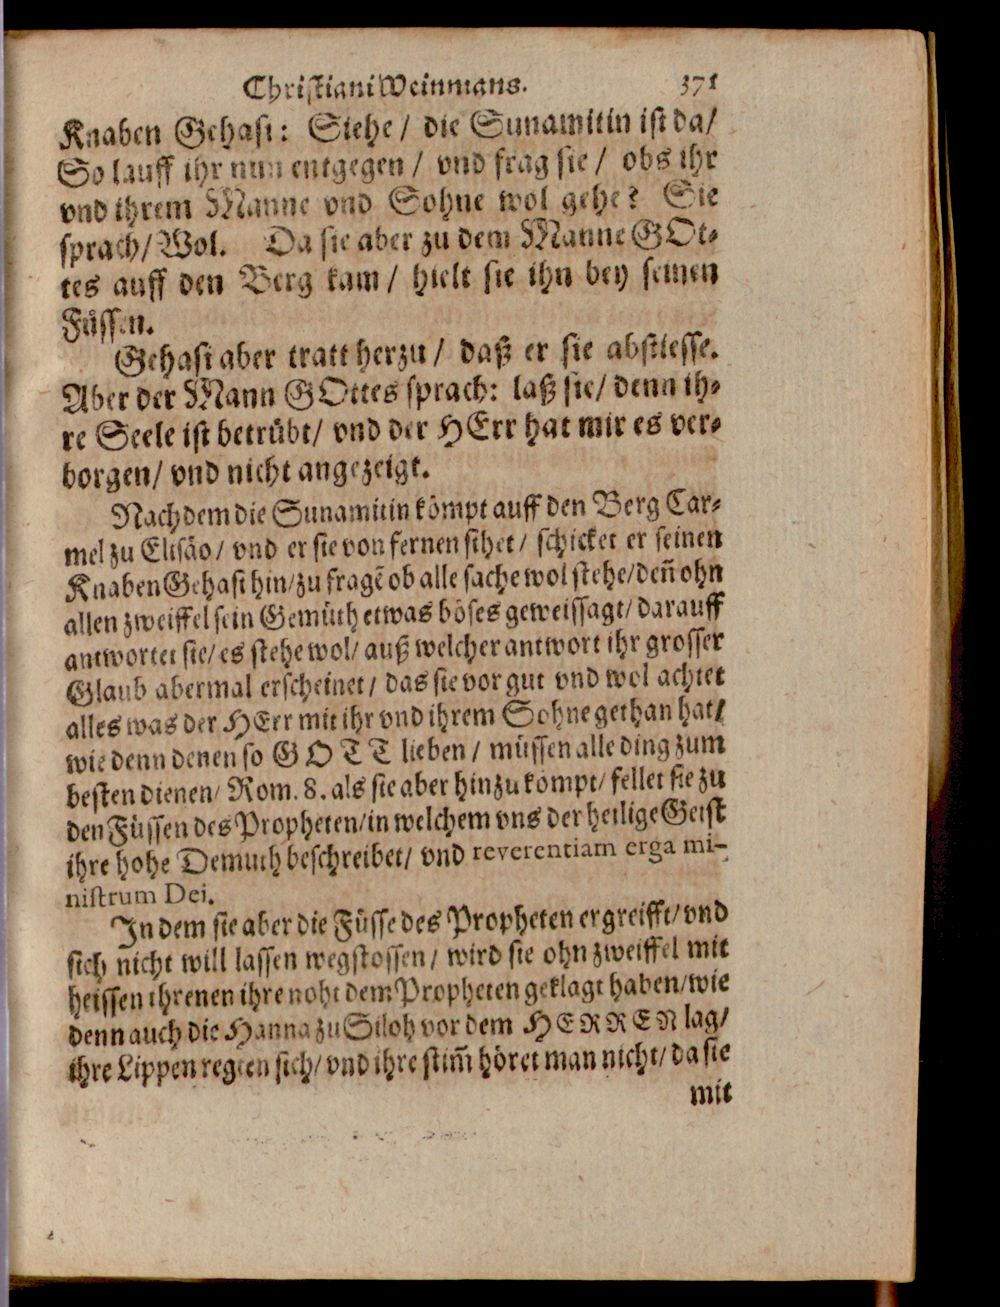 Christiani Weinmans. 371
Knaben Gehasi: Siehe / die Sunamitin ist da/
So lauff ihr nun entgegen / vnd frag sie / obs ihr
vnd ihrem Manne vnd Sohne wol gehe? Sie
sprach/ Wol. Da sie aber zu dem Manne GOt-
tes auff den Berg kam / hielt sie ihn bey seinen
Füssen.
Gehasi aber tratt herzu / daß er sie abstiesse.
Aber der Mann GOttes sprach: laß sie/ denn ih-
re Seele ist betrübt/ vnd der HErr hat mir es ver-
borgen/ vnd nicht angezeigt.
Nach dem die Sunamitin kömpt auff den Berg Car-
mel zu Elisäo/ vnd er sie von fernen sihet/ schicket er seinen
Knaben Gehasi hin/ zu fragē ob alle sache wol stehe/ deñ ohn
allen zweiffel sein Gemüth etwas böses geweissagt/ darauff
antwortet sie/ es stehe wol/ auß welcher antwort ihr grosser
Glaub abermal erscheinet/ das sie vor gut vnd wol achtet
alles was der HErr mit ihr vnd ihrem Sohne gethan hat/
wie denn denen so GOTT lieben / müssen alle ding zum
besten dienen/ Rom. 8. als sie aber hinzu kompt/ fellet sie zu
den Füssen des Propheten/ in welchem vns der heilige Geist
ihre hohe Demuth beschreibet/ vnd reverentiam erga mi-
nistrum Dei.
In dem sie aber die Füsse des Propheten ergreifft/ vnd
sich nicht will lassen wegstossen/ wird sie ohn zweiffel mit
heissen threnen ihre noht dem Propheten geklagt haben/ wie
denn auch die Hanna zu Siloh vor dem HERREN lag/
ihre Lippen regten sich/ vnd ihre stim̃ höret man nicht/ da sie
mit